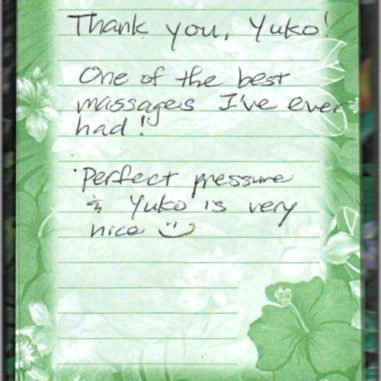 Thank you, Yuko!
One of the best
massages I've ever
had!
Perfect pressure
& Yuko is very
nice :)